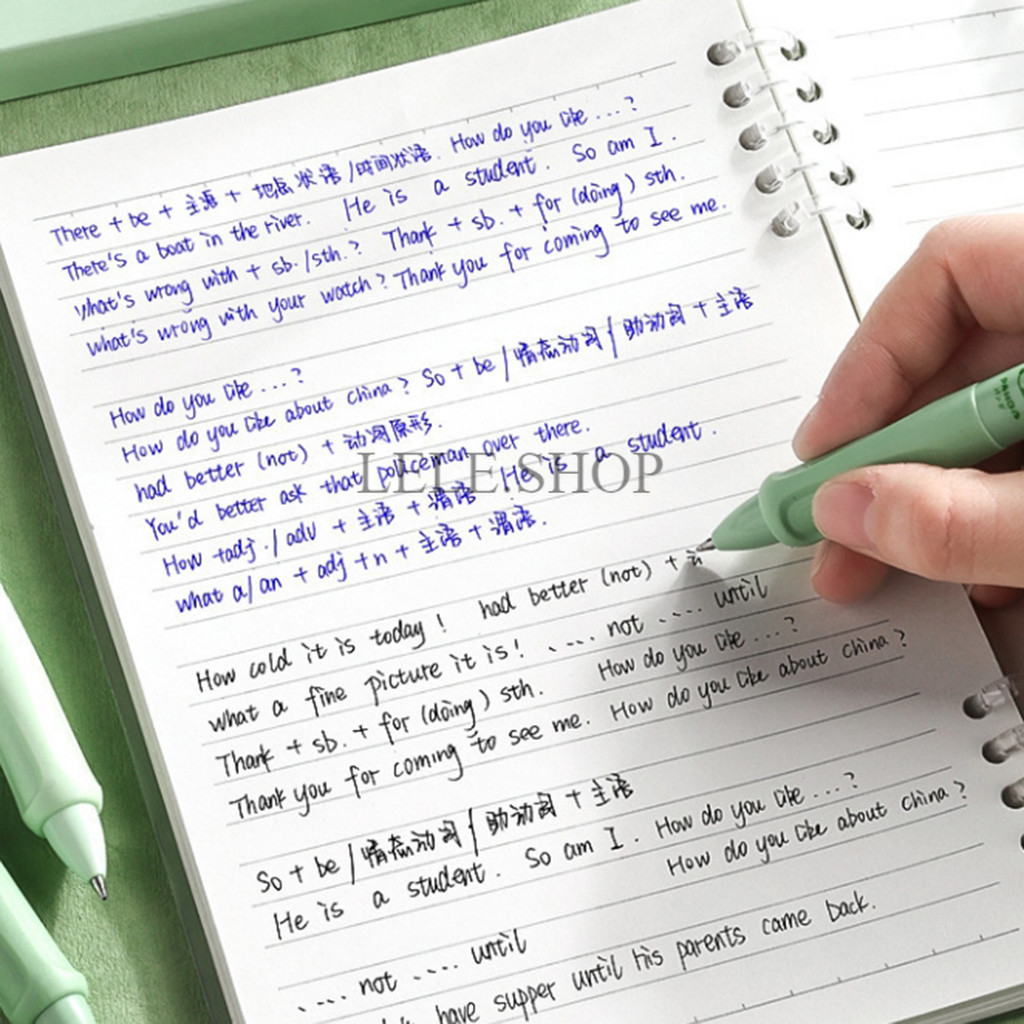 There + be + 主语 + 地点状语/时间状语. How do you like ...?
There's a boat in the river. He is a student. So am I.
What's wrong with + sb./sth.? Thank + sb. + for (doing) sth.
What's wrong with your watch? Thank you for coming to see me.
How do you like ...?
How do you like about china? So + be / 情态动词 / 助动词 + 主语
had better (not) + 动词原形.
You'd better ask that policeman over there.
How + adj. / adv + 主语 + 谓语 He is a student.
what a/an + adj + n + 主语 + 谓语.
LELE SHOP
How cold it is today! had better (not) +
what a fine picture it is! .... not .... until
Thank + sb. + for (doing) sth. How do you like ...?
Thank you for coming to see me. How do you like about china?
So + be / 情态动词 / 助动词 + 主语
He is a student. So am I. How do you like ...?
How do you like about china?
.... not .... until
have supper until his parents came back.
PANDA